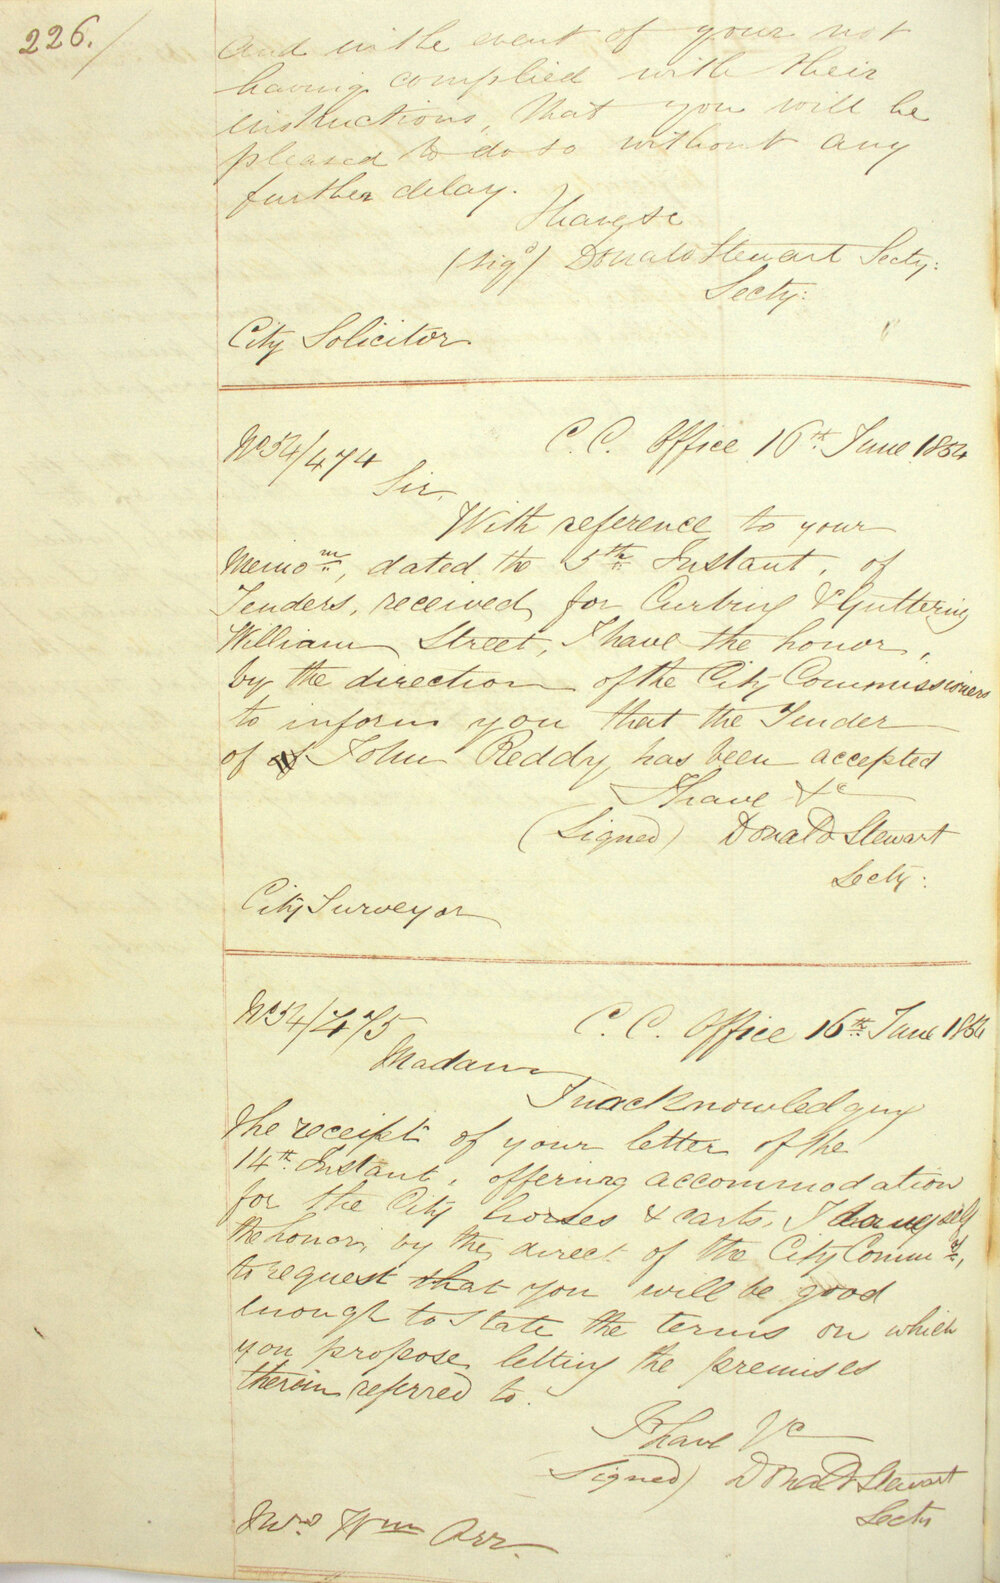 226.
and in the event of your not
having complied with their
instructions, that you will be
pleased to do so without any
further delay.
I have &c
(Sigd) Donald Stewart Secty:
Secty:
City Solicitor
No 54/474
C. C. Office 16th June 1854
Sir,
With reference to your
Memom, dated the 5th Instant, of
Tenders, received for Curbing & Guttering
William Street, I have the honor,
by the direction of the City Commissioners
to inform you that the Tender
of John Reddy has been accepted
I have &c
(Signed) Donald Stewart
Secty:
City Surveyor
No 54/475
C. C. Office 16th June 1854
Madam
In acknowledging
the receipt of your letter of the
14th Instant, offering accommodation
for the City horses & carts, I
the honor, by the direct of the City Commrs,
to request that you will be good
enough to state the terms on which
you propose letting the premises
therein referred to.
I have &c
(Signed) Donald Stewart
Secty
Mrs. Wm Orr.